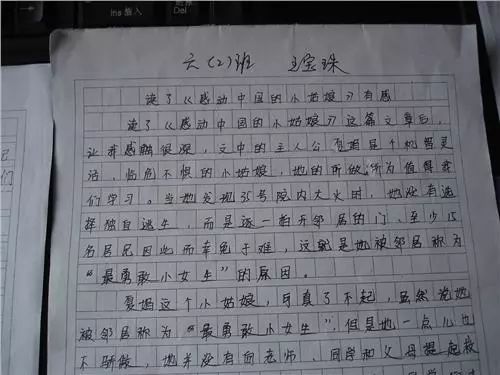 Ins 插入
Del
六(2)班 王宝珠
读了《感动中国的小姑娘》有感
读了《感动中国的小姑娘》这篇文章后，
让我感触很深，文中的主人公夏嫣是个机智灵
活，临危不惧的小姑娘，她的所做所为值得我
们学习。当她发现35号院内大火时，她没有选
择独自逃生，而是逐一拍开邻居的门、至少15
名居民因此而幸免于难，这就是她被邻居称为
“最勇敢小女生”的原因。
夏嫣这个小姑娘，可真了不起，虽然说她
被邻居称为“最勇敢小女生”，但是她一点儿也
不骄傲，她并没有向老师、同学和父母提起救
们